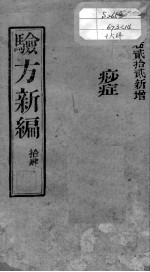 卷貳拾貳新增
痧症
驗方新編
拾肆